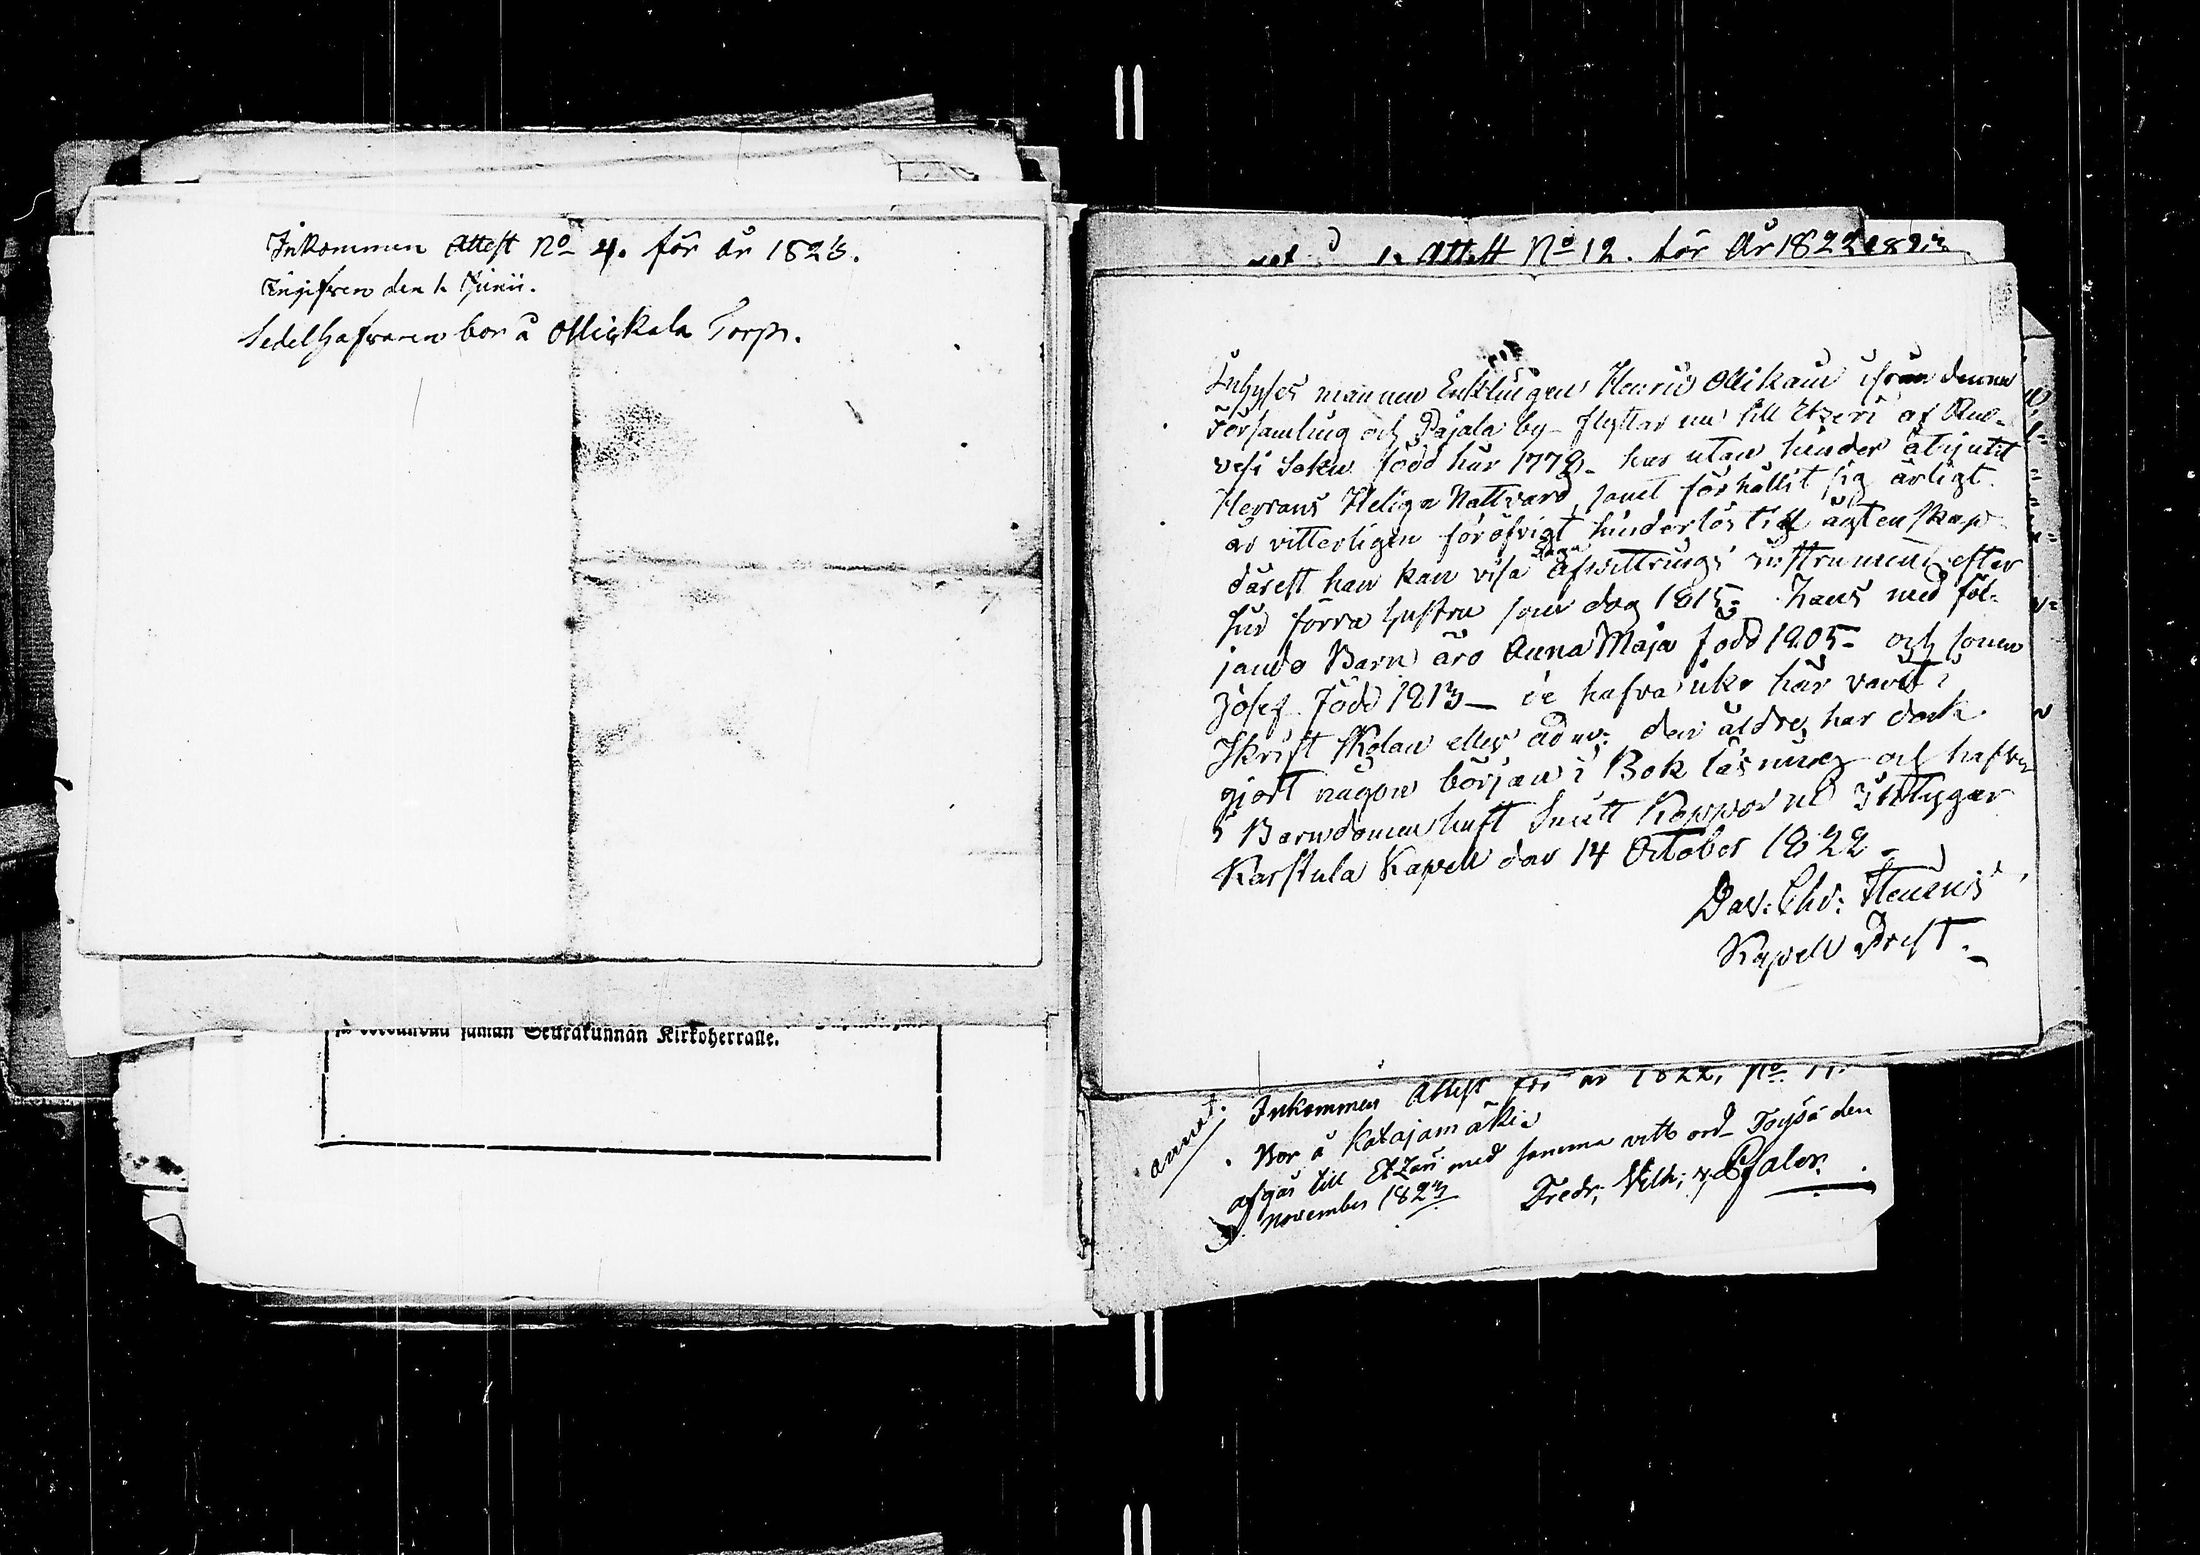 Inkommen Attest No 4. för år 1823.
Ingifven den 1. Junii.
Sedelhafvaren bor å Ollickala Torp.
saman Seurakunnan Kirkoherralle.
Attest No 12. för År 1822
Inhyses mannen Enklingen Henric Ollikain ifrån denna
Församling och Pajala by flyttar nu till Etzeri af Ruo-
vesi Sokn född här 1778 - har utan hinder åtnjutit
Herrans Heliga Nattvard, samt förhållit sig ärligt.
är vitterligen föröfrigt hinderlös till ägtenskap
därest han kan visa Laga afwittrings instrument efter
sin förra hustru som dog 1815. Hans med föl-
jande Barn äro Anna Maja född 1805 - och sonen
Josef född 1813 - de hafva icke här varit i
Skrift Skolan eller adm: den äldre har dock
gjort någon början i Bok läsning och hafva
i Barndomen haft Smitt Koppor ne intygar
Karstula Kapell den 14 October 1822 -
Dav: Chr:
Kapell Prest.
Inkommen Attest för år 1822, No 11.
Bor å Katajamäki
afgår till Etzäri med samma vitts ord Töysä den
November 1823 Fredr; Vilh; v; Pfaler